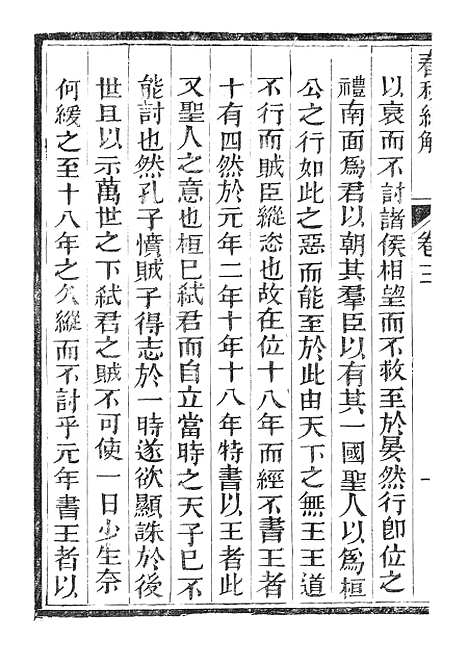 春秋經解
卷三
一
以哀而不討諸侯相望而不救至於晏然行卽位之
禮南面爲君以朝其羣臣以有其一國聖人以爲桓
公之行如此之惡而能至於此由天下之無王王道
不行而賊臣縱恣也故在位十八年而經不書王者
十有四然於元年二年十年十八年特書以王者此
又聖人之意也桓已弑君而自立當時之天子已不
能討也然孔子憤賊子得志於一時遂欲顯誅於後
世且以示萬世之下弑君之賊不可使一日少生奈
何緩之至十八年之久縱而不討乎元年書王者以